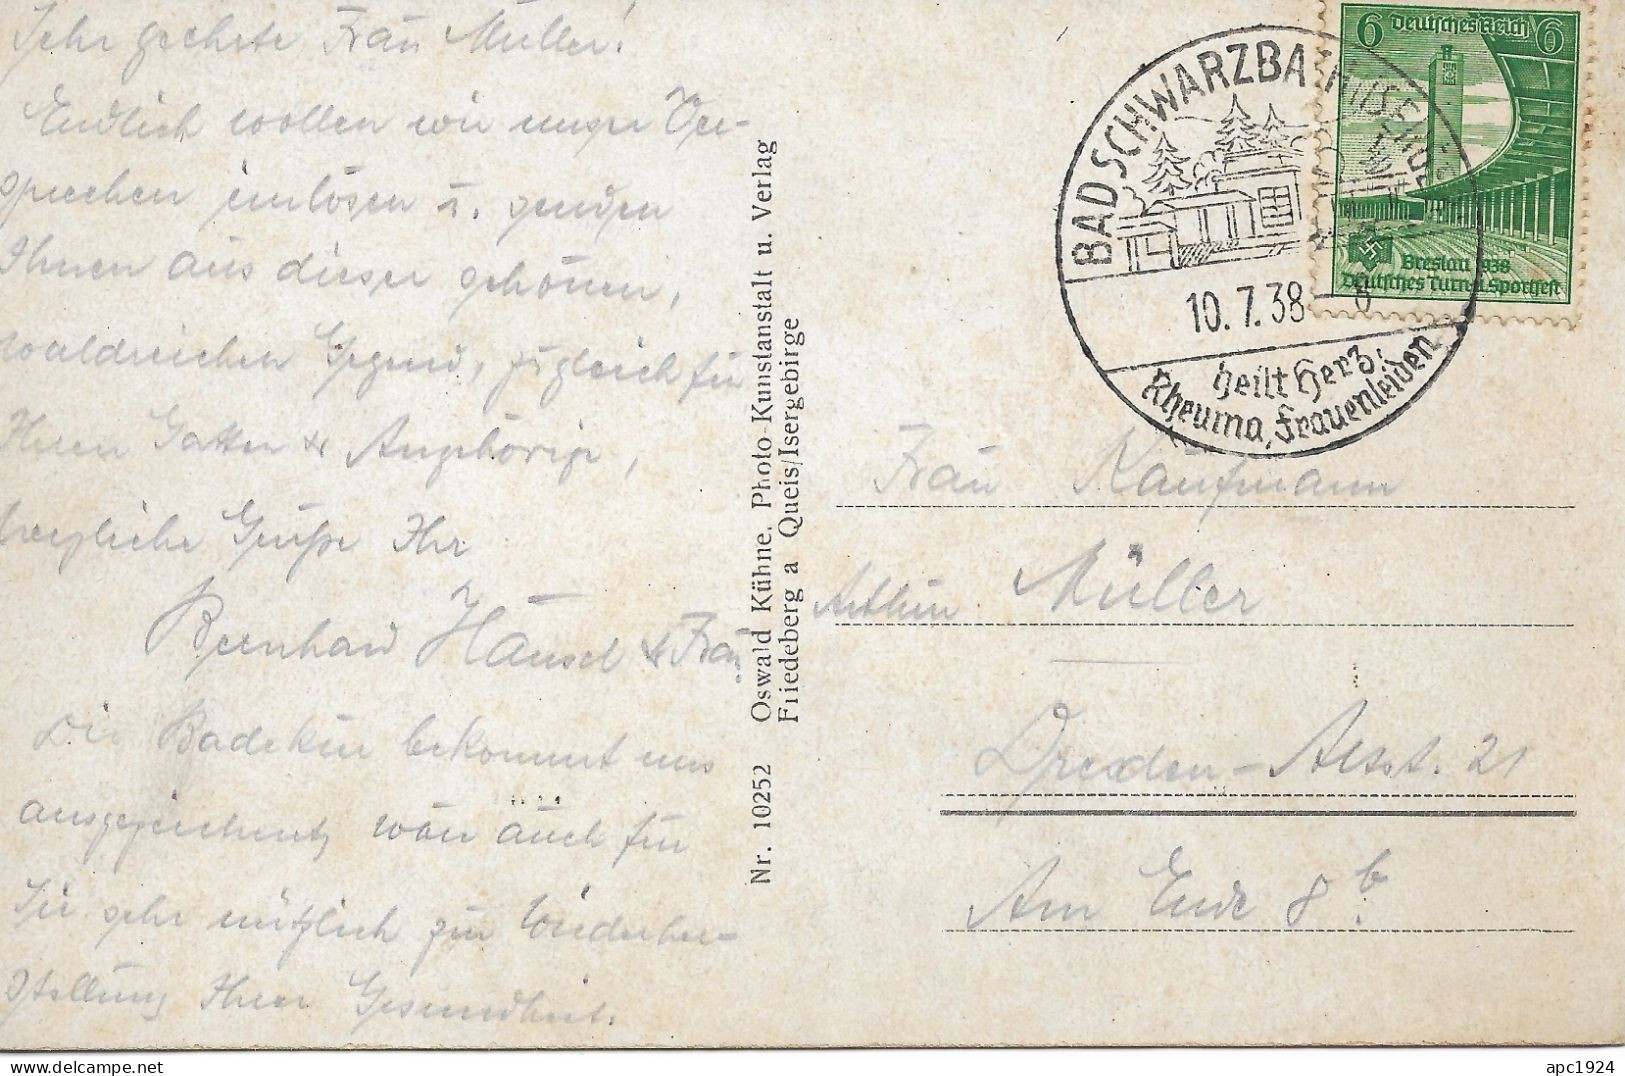 Sehr geehrte Frau Müller!
Endlich wollen wir unser Ver-
sprechen einlösen u. senden
Ihnen aus dieser schönen,
waldreichen Gegend, zugleich für
Ihren Gatten & Angehörige,
herzliche Grüße Ihr
Bernhard Hänsel & Frau
Die Badekur bekommt uns
ausgezeichnet, wär auch für
Sie sehr nützlich zur Wiederher-
stellung Ihrer Gesundheit.
Nr. 10252 Oswald Kühne, Photo-Kunstanstalt u. Verlag
Friedeberg a Queis/Isergebirge
BAD SCHWARZBACH ISERGEB
10.7.38 - 8
heilt Herz,
Rheuma, Frauenleiden
6 Deutsches Reich 6
Breslau 1938
Deutsches Turn u. Sportfest
Frau Kaufmann
Arthur Müller
Dresden-Altst. 21
Am Ende 8 b.
apc1924